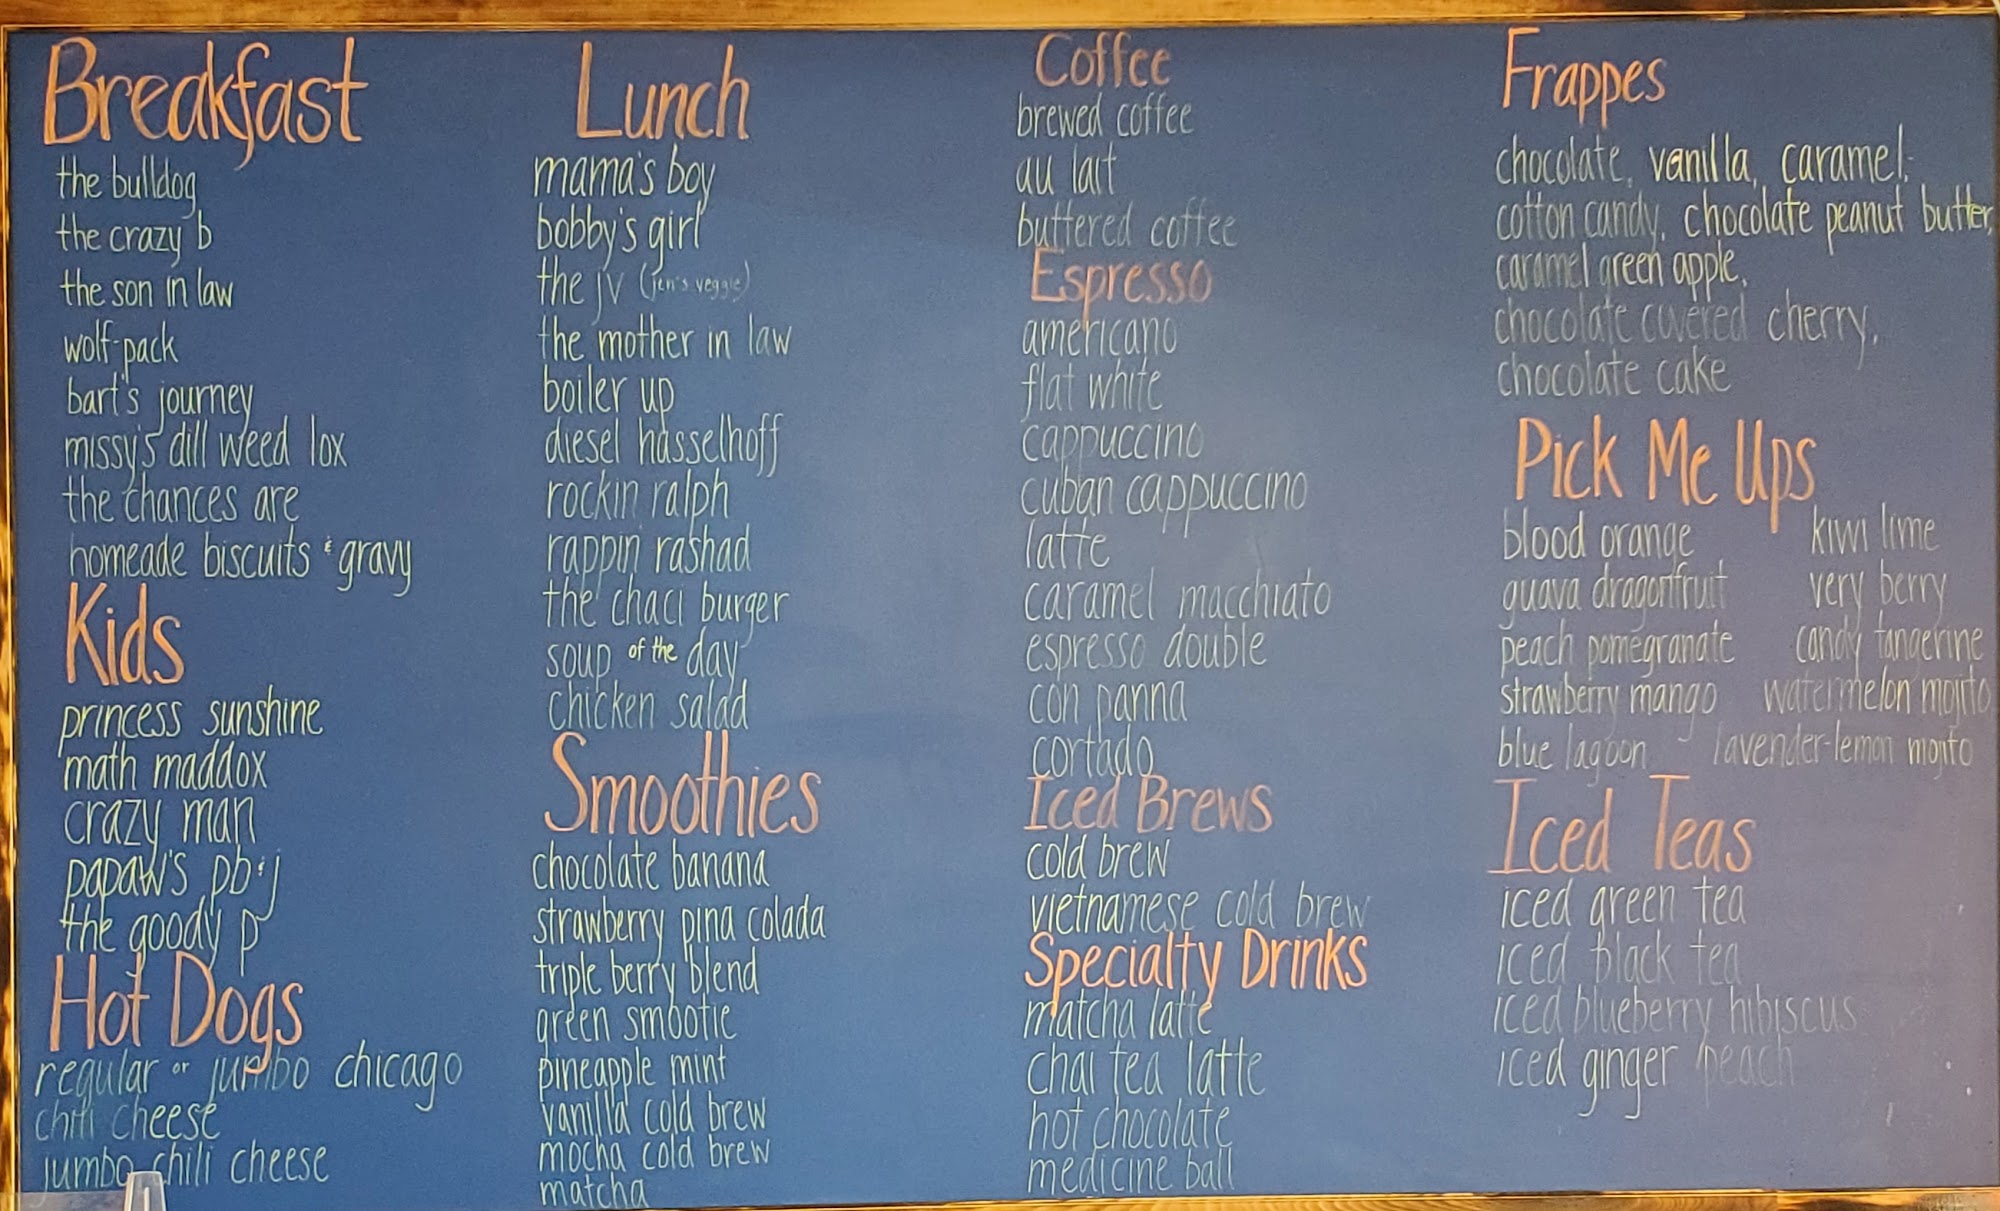 Breakfast
the bulldog
the crazy b
the son in law
wolf-pack
bart's journey
missy's dill weed lox
the chances are
homeade biscuits & gravy
Kids
princess sunshine
math maddox
crazy man
papaw's pb & j
the goody p
Hot Dogs
regular or jumbo chicago
chili cheese
jumbo chili cheese
Lunch
mama's boy
bobby's girl
the jv (jen's veggie)
the mother in law
boiler up
diesel hasselhoff
rockin ralph
rappin rashad
the chaci burger
soup of the day
chicken salad
Smoothies
chocolate banana
strawberry pina colada
triple berry blend
green smootie
pineapple mint
vanilla cold brew
mocha cold brew
matcha
Coffee
brewed coffee
au lait
buttered coffee
Espresso
americano
flat white
cappuccino
cuban cappuccino
latte
caramel macchiato
espresso double
con panna
cortado
Iced Brews
cold brew
vietnamese cold brew
Specialty Drinks
matcha latte
chai tea latte
hot chocolate
medicine ball
Frappes
chocolate, vanilla, caramel,
cotton candy, chocolate peanut butter,
caramel green apple,
chocolate covered cherry,
chocolate cake
Pick Me Ups
blood orange kiwi lime
guava dragonfruit very berry
peach pomegranate candy tangerine
strawberry mango watermelon mojito
blue lagoon lavender-lemon mojito
Iced Teas
iced green tea
iced black tea
iced blueberry hibiscus
iced ginger peach